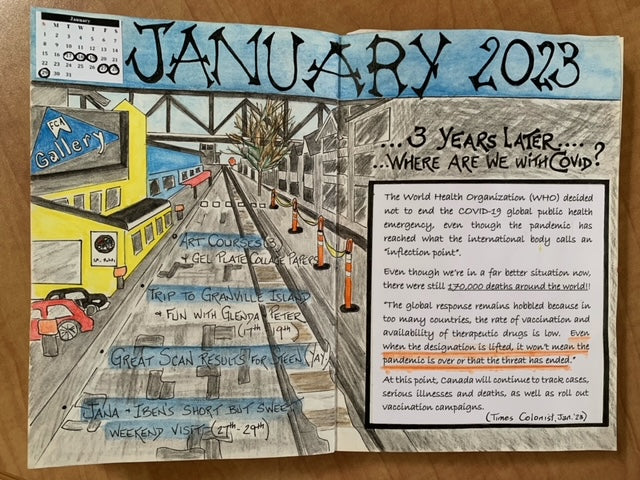 January
S M T W T F S
1 2 3 4 5 6 7
8 9 10 11 12 13 14
15 16 17 18 19 20 21
22 23 24 25 26 27 28
29 30 31
JANUARY 2023
FCA
Gallery
• ART COURSES (3)
& GEL PLATE COLLAGE PAPERS
• TRIP TO GRANVILLE ISLAND
& FUN WITH GLENDA & PETER
(17th - 19th)
• GREAT SCAN RESULTS FOR STEEN (YAY)
• JANA & IBEN'S SHORT BUT SWEET
WEEKEND VISIT (27th - 29th)
... 3 YEARS LATER ....
... WHERE ARE WE WITH COVID?
The World Health Organization (WHO) decided
not to end the COVID-19 global public health
emergency, even though the pandemic has
reached what the international body calls an
"inflection point".
Even though we're in a far better situation now,
there were still 170,000 deaths around the world!!
"The global response remains hobbled because in
too many countries, the rate of vaccination and
availability of therapeutic drugs is low. Even
when the designation is lifted, it won't mean the
pandemic is over or that the threat has ended."
At this point, Canada will continue to track cases,
serious illnesses and deaths, as well as roll out
vaccination campaigns.
(Times Colonist, Jan. '23)